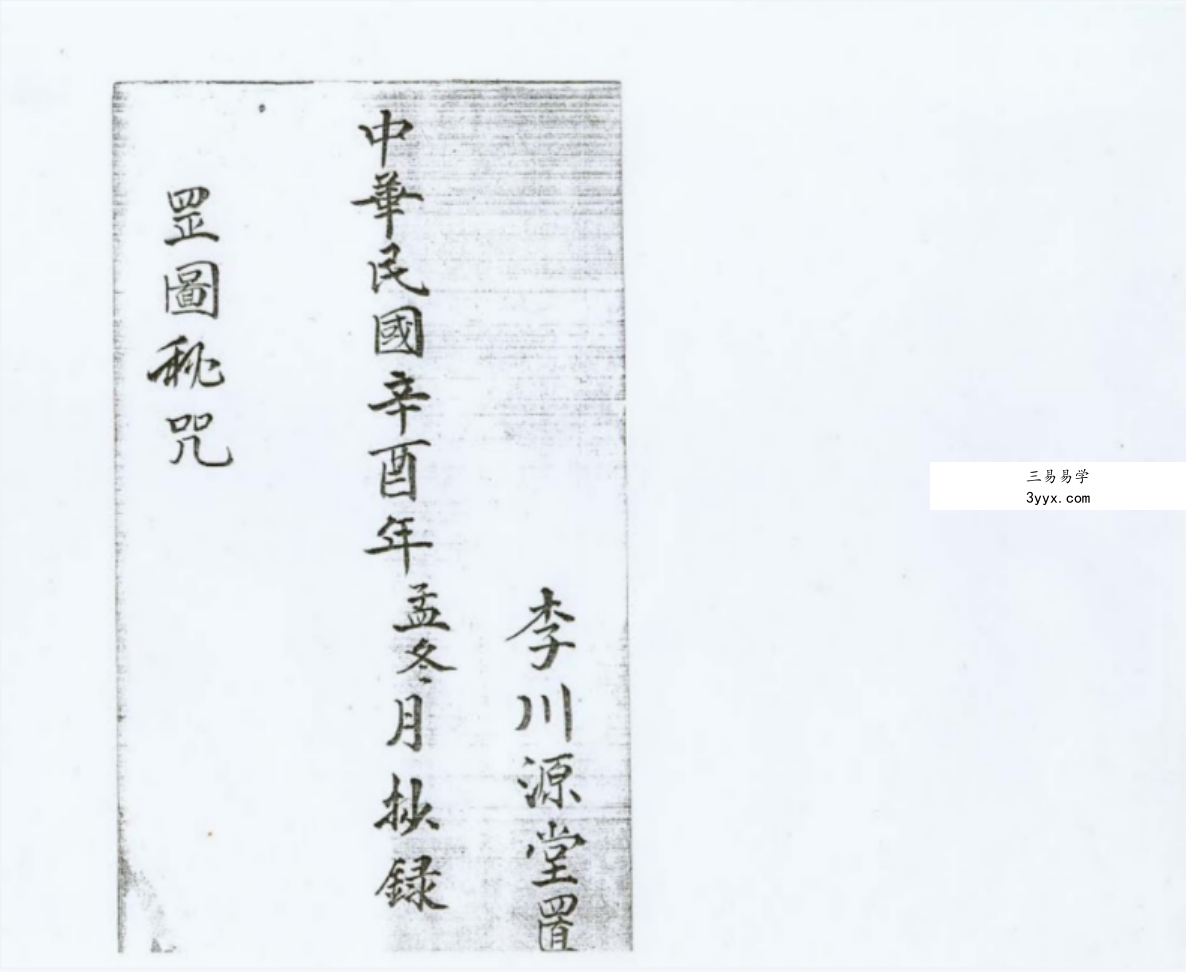 李川源堂置
中華民國辛酉年孟冬月抄録
罡圖秘咒
三易易学
3yyx.com